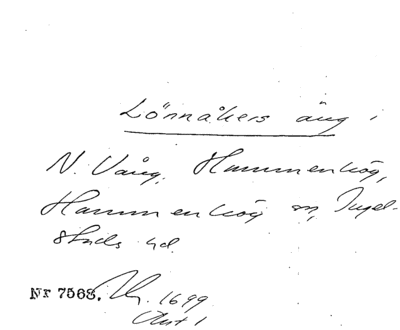 Lönnåkers äng i
N. Vång, Hammenhög,
Hammenhög sn, Ingel-
stads hd.
Nr 7568. 1699